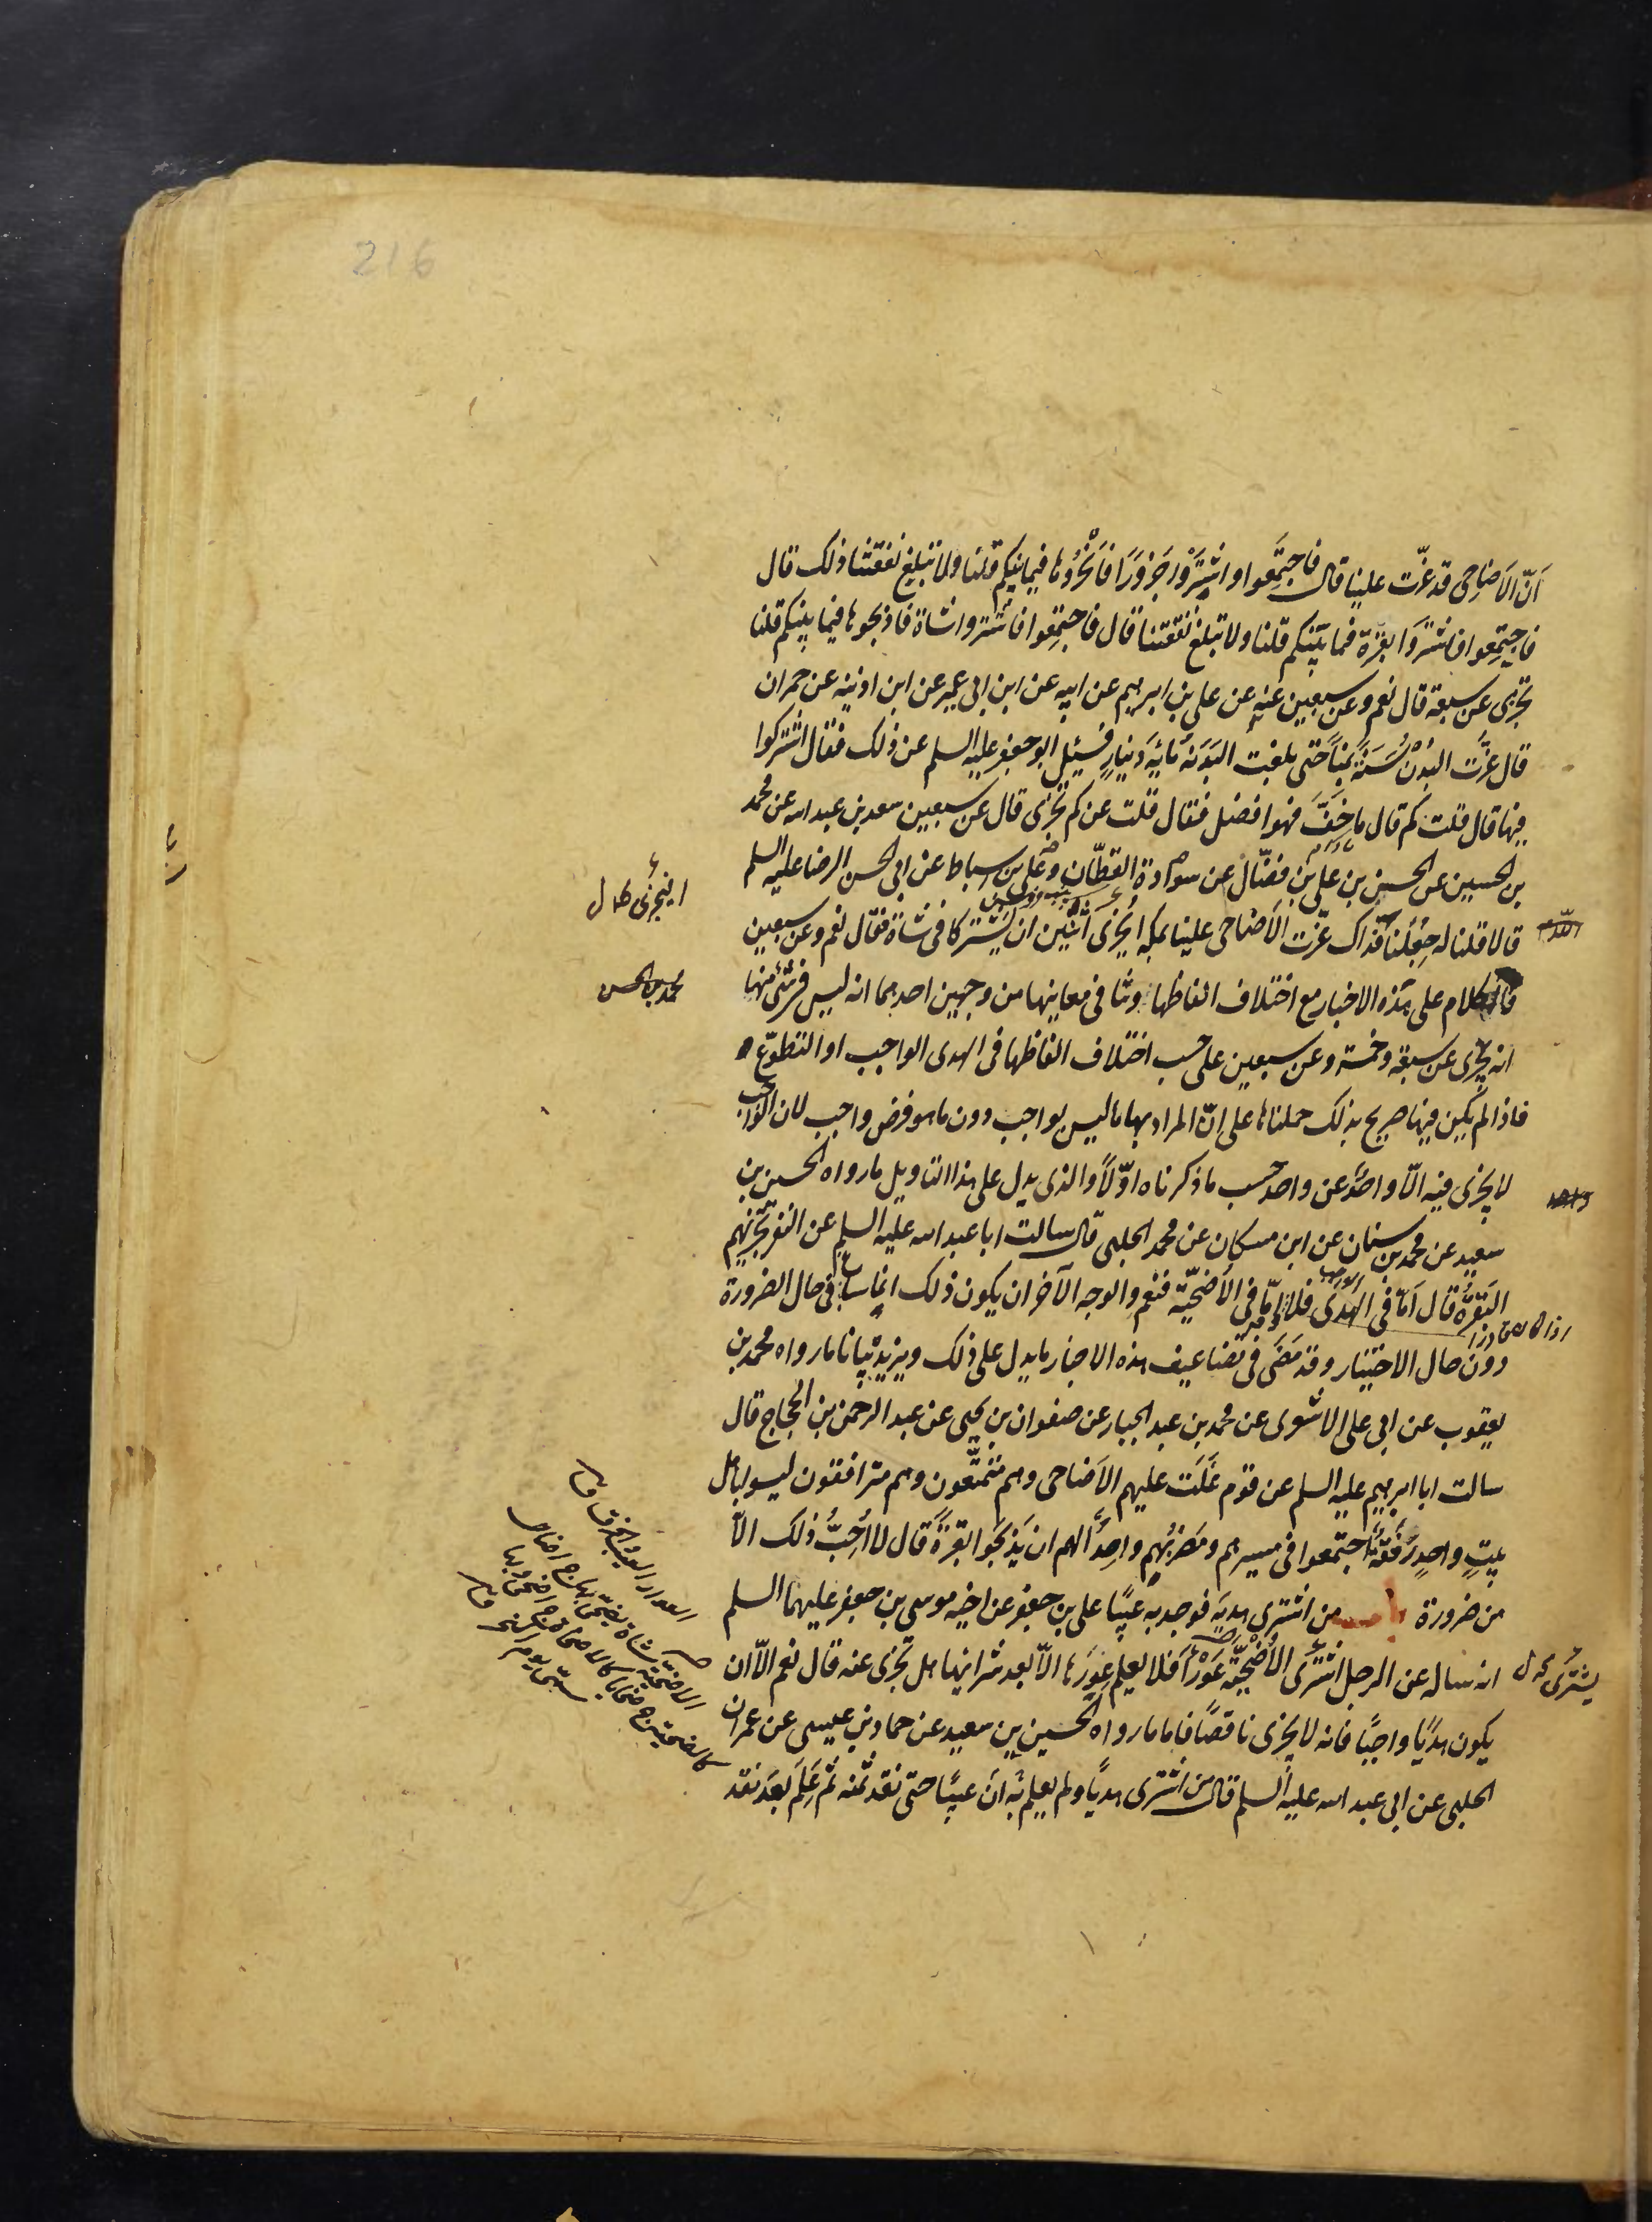 216
انّ الاَضاحِى قد عزّت علينا قال فاجتمِعوا و اشترَوا جَزورًا فانْحَرُوها فيما بينكم قلنا و لا تبلغ نفقتنا ذلك قال
فاجتمِعوا فاشتروا بقرة فيما بينكم قلنا ولا تبلغ نفقتنا قال فاجتمِعوا فاشتروا شاة فاذبحوها فيما بينكم قلنا
تجزى عن سبعة قال نعم و عن سبعين عنه عن على بن ابرهيم عن ابيه عن ابن ابى عمير عن ابن اذينه عن حمران
قال عزّت البُدن سَنَةً بمِنًا حتى بلغت البَدَنَة مأيَة دينارٍ فسُئِل ابو جعفر عليه السلم عن ذلك فقال اشتركوا
فيها قال قلت كم قال ما خَفَّ فهو افضل فقال قلت عن كم تجزى قال عن سبعين سعد بن عبد الله عن محمد
بن الحسين عن الحسن بن على بن فضّال عن سوادة القطّان و على بن اسباط عن ابى الحسن الرضا عليه السلم
قالا قلنا له جُعِلنا فداك عزّت الاَضاحى علينا بمكه ايجزى اثنين ان يشتركا فى شاة فقال نعم و عن سبعين
فالكلام على هذه الاخبار مع اختلاف الفاظها و تنا فى معانيها من وجهين احدهما انه ليس فى شئ منها
انه يجزى عن سبعة و خمسة و عن سبعين على حسب اختلاف الفاظها فى الهدى الواجب او التطوّع
فاذا لم يكن فيها صريح بذلك حملناها على انّ المراد بها ما ليس بواجب دون ما هو فرض واجب لان الواجب
لا يجزى فيه الّا واحدٌ عن واحد حسب ما ذكرناه اوّلًا و الذى يدل على هذا التاويل ما رواه الحسين بن
سعيد عن محمد بن سنان عن ابن مسكان عن محمد الحلبى قال سالت ابا عبد الله عليه السلم عن النفر تجزيهم
البَقَرَة قال امّا فى الهدى فلا و امّا فى الاُضحيّة فنعم و الوجه الآخر ان يكون ذلك انما ساغ فى حال الضرورة
دون حال الاختيار و قد مَضَى فى تضاعيف هذه الاخبار ما يدل على ذلك و يزيد بيانا ما رواه محمد بن
يعقوب عن ابى على الاشعرى عن محمد بن عبد الجبار عن صفوان بن يحيى عن عبد الرحمن بن الحجاج قال
سالت ابا ابرهيم عليه السلم عن قوم غَلَت عليهم الاَضاحى و هم متمتّعون و هم مترافقون ليسو باهل
بيتٍ واحدٍ رفقة اجتمعوا فى مسيرهم و مَضربُهم واحدٌ الهم ان يَذبَحوا بقرةً قال لا اُحِبُّ ذلك الّا
من ضرورة باب من اشترى هديَة فوجد به عيبًا على بن جعفر عن اخيه موسى بن جعفر عليهما السلم
انه ساله عن الرجل اشترى الاُضحِيّة عَورآء فلا يعلم عِورَها الّا بعد شرائها هل تجزى عنه قال نعم الّا ان
يكون هديًا واجبًا فانه لا يجزى ناقصًا فاما ما رواه الحسين بن سعيد عن حماد بن عيسى عن عمران
الحلبى عن ابى عبد الله عليه السلم قال من اشترى هديًا و لم يعلم به انَ عيبًا حتى نقد ثمنه ثم عَلَم بعد نقد
محمد بن الحسن